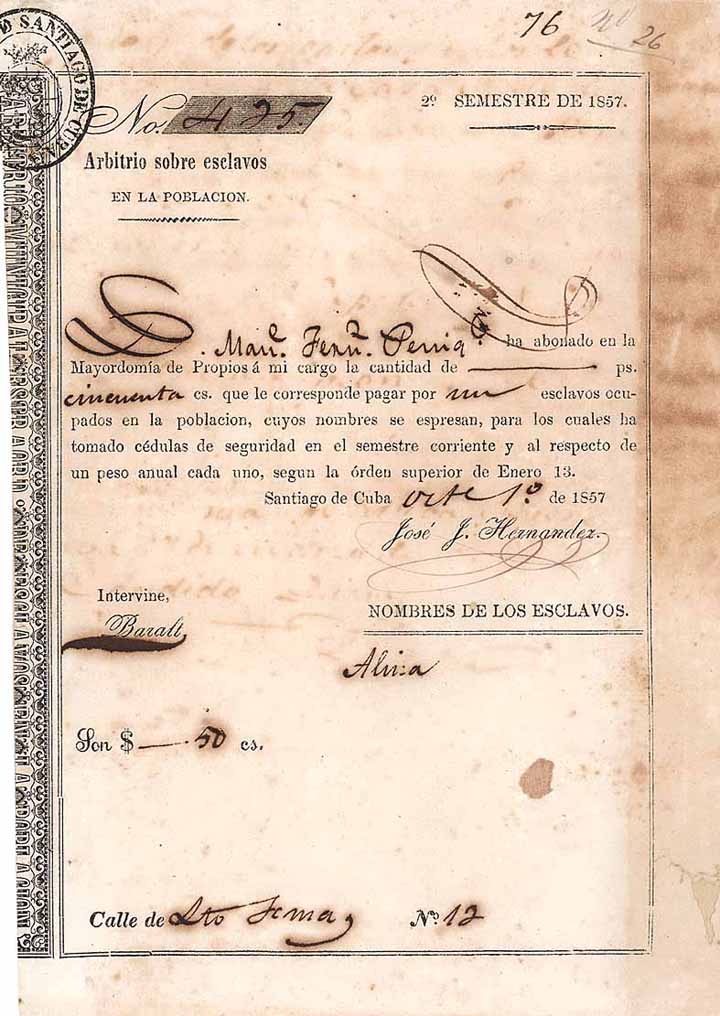 76 Nº 26
SANTIAGO DE CUBA
No. 425
2º SEMESTRE DE 1857.
Arbitrio sobre esclavos
EN LA POBLACION.
D. Manl. Fernz. ha abonado en la
Mayordomía de Propios á mi cargo la cantidad de ps.
cincuenta cs. que le corresponde pagar por un esclavos ocu-
pados en la poblacion, cuyos nombres se espresan, para los cuales ha
tomado cédulas de seguridad en el semestre corriente y al respecto de
un peso anual cada uno, segun la órden superior de Enero 13.
Santiago de Cuba Octe 1º de 1857
José J. Hernandez.
Intervine,
Baralt
NOMBRES DE LOS ESCLAVOS.
Son $ 50 cs.
Calle de Sto Nº 12